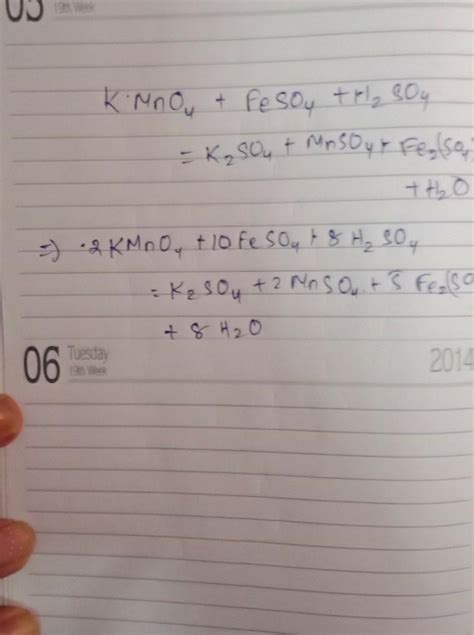 05 19th Week
K·MnO₄ + FeSO₄ + H₂SO₄
= K₂SO₄ + MnSO₄ + Fe₂(SO₄
+ H₂O
⇒ ·2KMnO₄ + 10FeSO₄ + 8H₂SO₄
= K₂SO₄ + 2MnSO₄ + 5 Fe₂(SO
+ 8H₂O
06 Tuesday 2014
19th Week